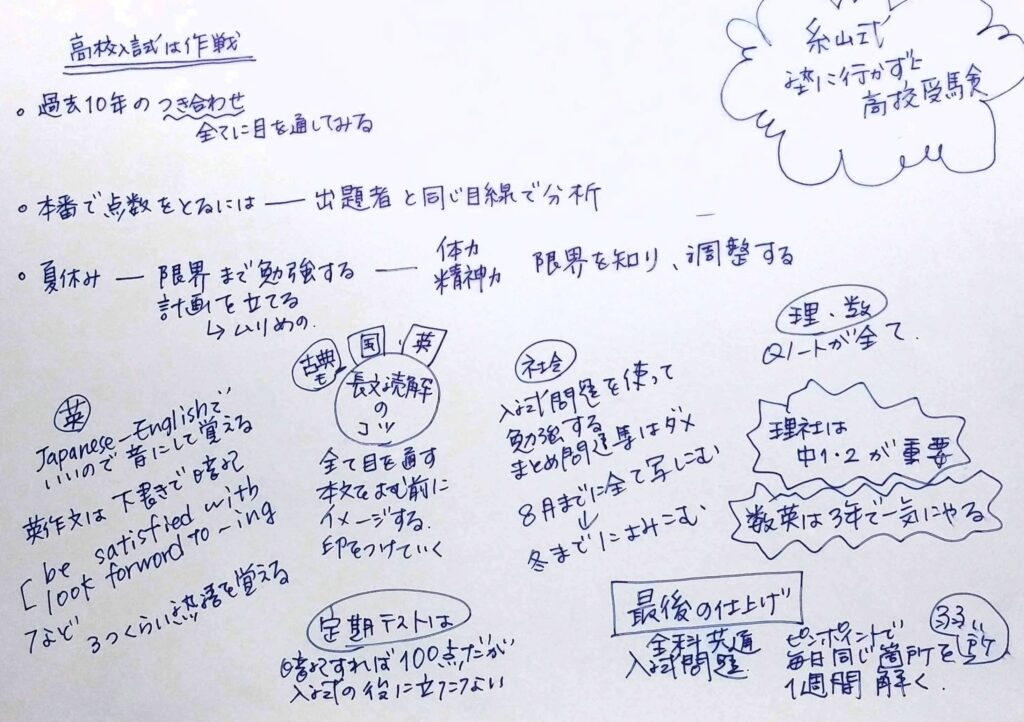 高校入試は作戦
糸山式
塾に行かずに
高校受験
○ 過去10年のつき合わせ
全てに目を通してみる
○ 本番で点数をとるには ― 出題者と同じ目線で分析
○ 夏休み ― 限界まで勉強する ― 体力 精神力 限界を知り、調整する
計画を立てる
↳ ムリめの.
英
Japanese-Englishで
いいので音にして覚える
英作文は下書きで暗記
be satisfied with
look forward to ~ing
など 3つくらい熟語を覚える
古典も
国・英
長文読解
の
コツ
全て目を通す
本文をよむ前に
イメージする.
印をつけていく
社会
入試問題を使って
勉強する
まとめ問題集はダメ
8月までに全て写しこむ
↓
冬までによみこむ
理・数
Qノートが全て.
理社は
中1・2が重要
数英は3年で一気にやる
定期テストは
暗記すれば100点だが
入試の役に立たない
最後の仕上げ
全科共通
入試問題.
ピンポイントで
毎日同じ箇所を
1週間解く.